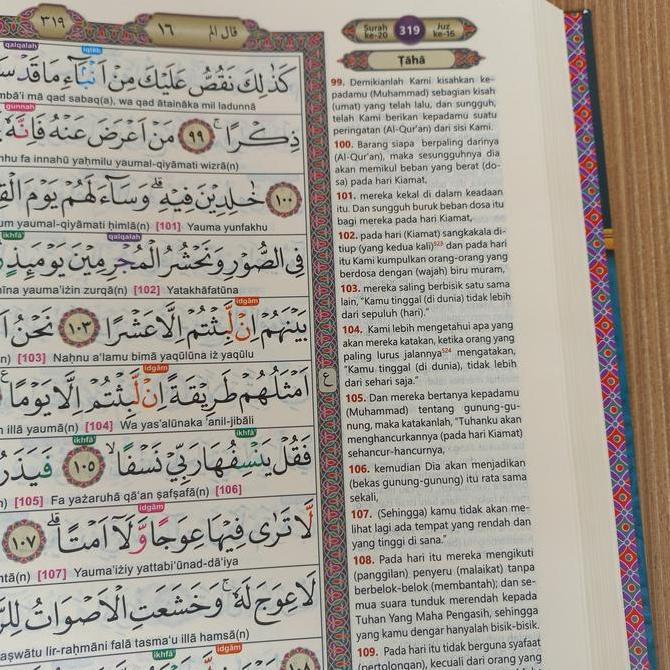 ٣١٩
١٦
قال الم
Surah
ke-20
319
Juz
ke-16
Ṭāhā
qalqalah
iqlab
كَذٰلِكَ نَقُصُّ عَلَيْكَ مِنْ اَنْۢبَاۤءِ مَا قَدْ
mbā'i mā qad sabaq(a), wa qad ātaināka mil ladunnā
gunnah
ذِكْرًا ۚ ٩٩ مَنْ اَعْرَضَ عَنْهُ فَاِنَّهٗ
nhu fa innahū yaḥmilu yaumal-qiyāmati wizrā(n)
١٠٠ خٰلِدِيْنَ فِيْهِ ۗ وَسَاۤءَ لَهُمْ يَوْمَ
um yaumal-qiyāmati ḥimlā(n) [101] Yauma yunfakhu
ikhfā'
qalqalah
فِى الصُّوْرِ وَنَحْشُرُ الْمُجْرِمِيْنَ يَوْمَىِٕذٍ
nīna yauma'iżin zurqā(n) [102] Yatakhāfatūna
idgām
بَيْنَهُمْ اِنْ لَّبِثْتُمْ اِلَّا عَشْرًا ١٠٣ نَحْنُ
n) [103] Naḥnu a'lamu bimā yaqūlūna iż yaqūlu
idgām
اَمْثَلُهُمْ طَرِيْقَةً اِنْ لَّبِثْتُمْ اِلَّا يَوْمًا ࣖ
ع
n illā yaumā(n) [104] Wa yas'alūnaka 'anil-jibāli
ikhfā'
ikhfā'
فَقُلْ يَنْسِفُهَا رَبِّيْ نَسْفًا ۙ ١٠٥ فَيَذَرُ
) [105] Fa yażaruhā qā'an ṣafṣafā(n) [106]
idgām
لَّا تَرٰى فِيْهَا عِوَجًا وَّلَآ اَمْتًا ۗ ١٠٧
ntā(n) [107] Yauma'iżiy yattabi'ūnad-dā'iya
لَا عِوَجَ لَهٗ ۚ وَخَشَعَتِ الْاَصْوَاتُ
aṣwātu lir-raḥmāni falā tasma'u illā hamsā(n)
ikhfā'
idgām
١٠٨
99. Demikianlah Kami kisahkan ke-
padamu (Muhammad) sebagian kisah
(umat) yang telah lalu, dan sungguh,
telah Kami berikan kepadamu suatu
peringatan (Al-Qur'an) dari sisi Kami.
100. Barang siapa berpaling darinya
(Al-Qur'an), maka sesungguhnya dia
akan memikul beban yang berat (do-
sa) pada hari Kiamat,
101. mereka kekal di dalam keadaan
itu. Dan sungguh buruk beban dosa itu
bagi mereka pada hari Kiamat,
102. pada hari (Kiamat) sangkakala di-
tiup (yang kedua kali)523 dan pada hari
itu Kami kumpulkan orang-orang yang
berdosa dengan (wajah) biru muram,
103. mereka saling berbisik satu sama
lain, "Kamu tinggal (di dunia) tidak lebih
dari sepuluh (hari)."
104. Kami lebih mengetahui apa yang
akan mereka katakan, ketika orang yang
paling lurus jalannya524 mengatakan,
"Kamu tinggal (di dunia), tidak lebih
dari sehari saja."
105. Dan mereka bertanya kepadamu
(Muhammad) tentang gunung-gu-
nung, maka katakanlah, "Tuhanku akan
menghancurkannya (pada hari Kiamat)
sehancur-hancurnya,
106. kemudian Dia akan menjadikan
(bekas gunung-gunung) itu rata sama
sekali,
107. (Sehingga) kamu tidak akan me-
lihat lagi ada tempat yang rendah dan
yang tinggi di sana."
108. Pada hari itu mereka mengikuti
(panggilan) penyeru (malaikat) tanpa
berbelok-belok (membantah); dan se-
mua suara tunduk merendah kepada
Tuhan Yang Maha Pengasih, sehingga
yang kamu dengar hanyalah bisik-bisik.
109. Pada hari itu tidak berguna syafaat
(pertolongan), kecuali dari orang yang